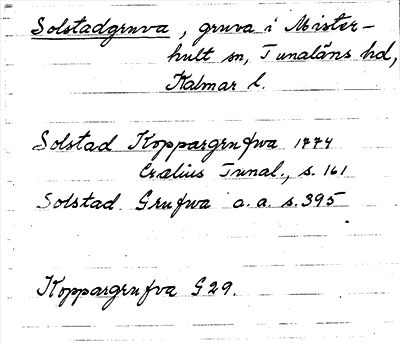 Solstadgruva, gruva i Mister-
hult sn, Tunaläns hd,
Kalmar l.
Solstad Koppargrufwa 1774
Crælius Tunal., s. 161
Solstad Grufwa a. a. s. 395
Koppargrufva G 29.